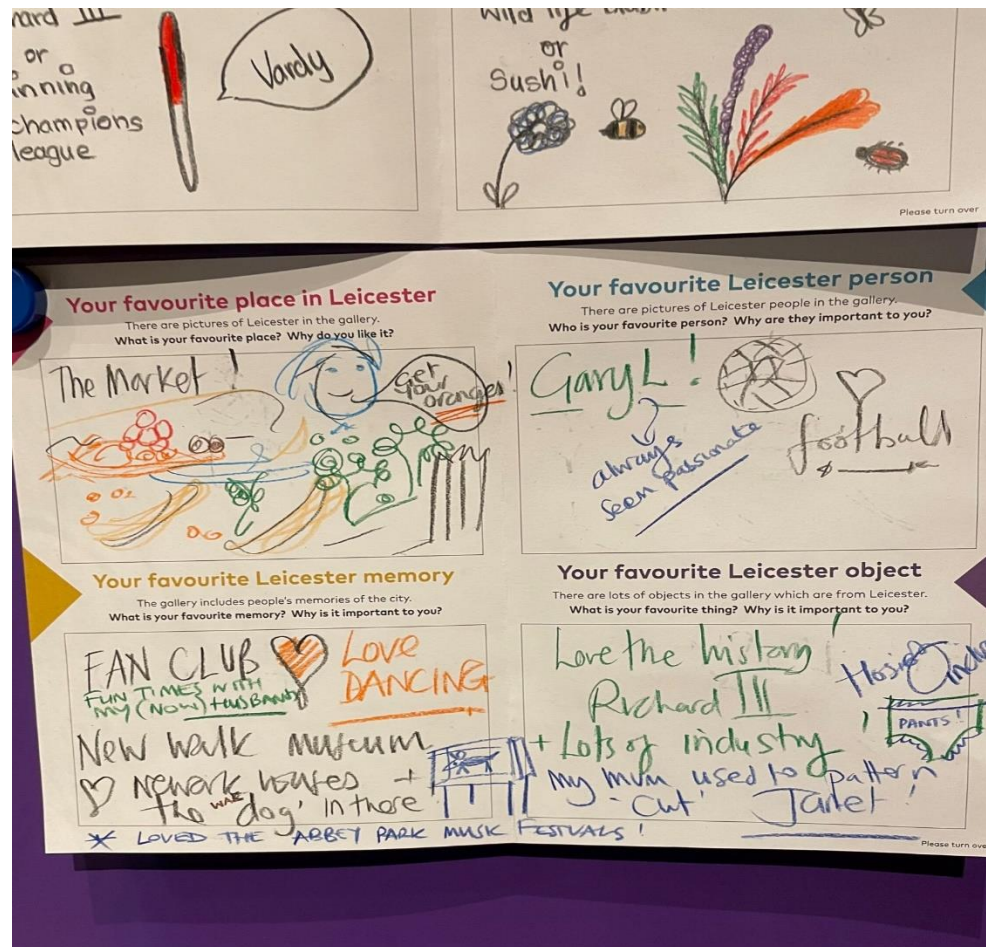 or
inning
champions
league
Vardy
Wild life
or
Sushi!
Please turn over
Your favourite place in Leicester
There are pictures of Leicester in the gallery.
What is your favourite place? Why do you like it?
The Market!
Get
Your
oranges!
Your favourite Leicester person
There are pictures of Leicester people in the gallery.
Who is your favourite person? Why are they important to you?
Gary L!
always
seem passionate
football
Your favourite Leicester memory
The gallery includes people's memories of the city.
What is your favourite memory? Why is it important to you?
FAN CLUB
FUN TIMES WITH
MY (NOW) HUSBAND
LOVE
DANCING
New Walk museum
Newark houses +
The WAR 'dog' in there
* LOVED THE ABBEY PARK MUSIC FESTIVALS!
Your favourite Leicester object
There are lots of objects in the gallery which are from Leicester.
What is your favourite thing? Why is it important to you?
Love the history!
Richard III
+ Lots of industry!
PANTS!
my mum used to pattern
'cut'
Janet!
Please turn ove